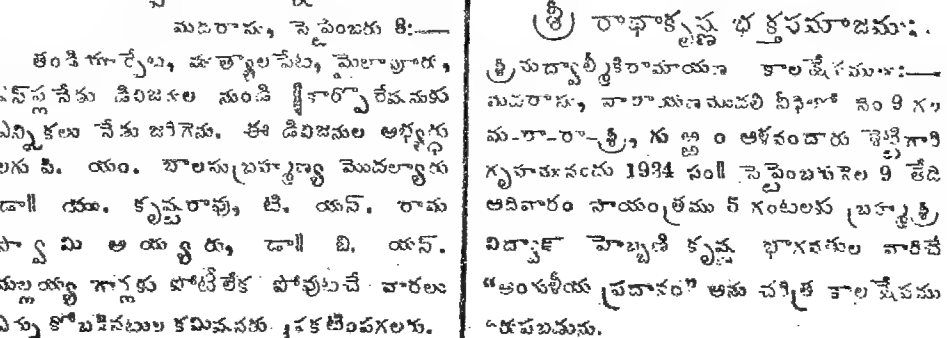 మదరాసు, సెప్టెంబరు 8:—
తండియార్పేట, ముత్యాలపేట, మైలాపూరు,
నేడు డివిజనుల నుండి కార్పొరేషనుకు
ఎన్నికలు నేడు జరిగెను. ఈ డివిజనుల అభ్యర్థు
లగు పి. యం. బాలసుబ్రహ్మణ్య మొదల్యారు
డా॥ యు. కృష్ణరావు, టి. యన్. రామ
స్వామి అయ్యరు, డా॥ బి. యన్.
మల్లయ్య గార్లకు పోటీలేక పోవుటచే వారలు
కమిషనరు ప్రకటింపగలరు.
శ్రీ రాధాకృష్ణ భక్తసమాజము:.
శ్రీమద్వాల్మీకిరామాయణ కాలక్షేపము:—
మదరాసు, నారాయణమొదలి వీధిలో నెం 9 గల
మ-రా-రా-శ్రీ, గుఱ్ఱం ఆళవందారు శెట్టిగారి
గృహమునందు 1934 సం॥ సెప్టెంబరునెల 9 తేది
ఆదివారం సాయంత్రము 5 గంటలకు బ్రహ్మశ్రీ
విద్వాన్ హెబ్బణి కృష్ణ భాగవతుల వారిచే
ప్రదానం" అను చరిత్ర కాలక్షేపము